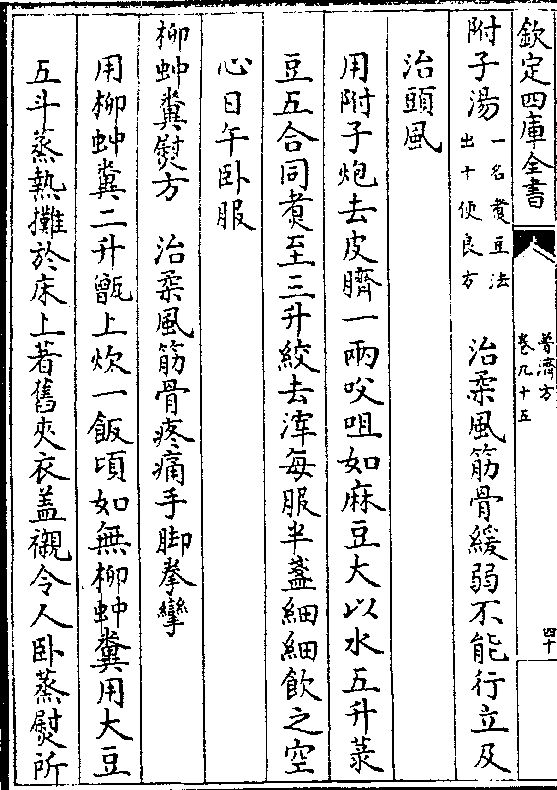 欽定四庫全書
普濟方
卷九十五
四十
附子湯 一名煮豆法 出十便良方 治柔風筋骨緩弱不能行立及
治頭風
用附子炮去皮臍一兩㕮咀如麻豆大以水五升菉
豆五合同煑至三升絞去滓每服半盞細細飲之空
心日午卧服
柳蚛糞熨方 治柔風筋骨疼痛手脚拳攣
用柳蚛糞二升甑上炊一飯頃如無柳蚛糞用大豆
五斗蒸熱攤於床上著舊夾衣盖襯令人卧蒸熨所